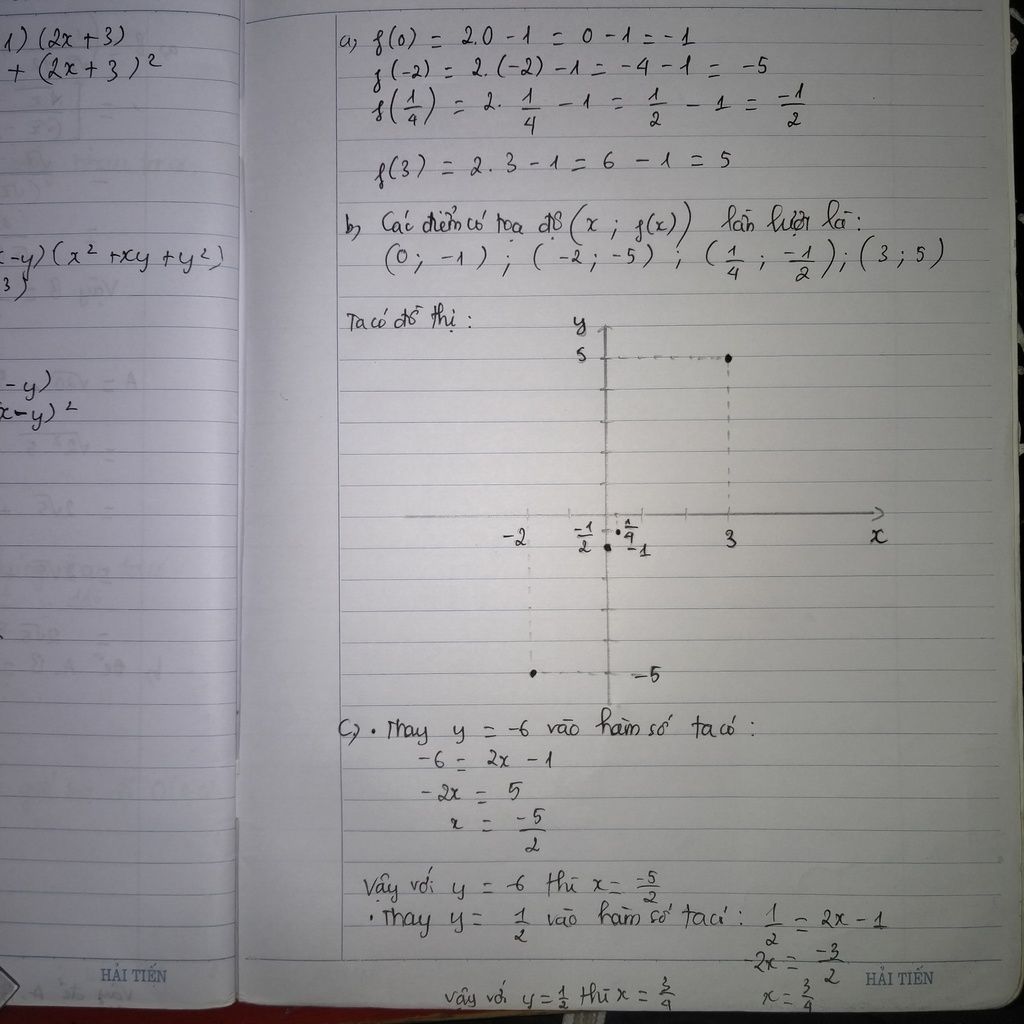 1) (2x+3)
+ (2x+3)²
x-y) (x² +xy+y²)
3)
-y)
x-y)²
HẢI TIẾN
a, f(0) = 2.0 - 1 = 0 - 1 = -1
f(-2) = 2.(-2) - 1 = -4 - 1 = -5
f(1/4) = 2. 1/4 - 1 = 1/2 - 1 = -1/2
f(3) = 2. 3 - 1 = 6 - 1 = 5
b, Các điểm có tọa độ (x ; f(x)) lần lượt là:
(0 ; -1) ; (-2 ; -5) ; (1/4 ; -1/2) ; (3 ; 5)
Ta có đồ thị :
y
5
-2 -1/2 1/4 3 x
-1
-5
c, • Thay y = -6 vào hàm số ta có :
-6 = 2x - 1
-2x = 5
x = -5/2
Vậy với y = -6 thì x = -5/2
• Thay y = 1/2 vào hàm số ta có : 1/2 = 2x - 1
-2x = -3/2
HẢI TIẾN
x = 3/4
Vậy với y = 1/2 thì x = 3/4